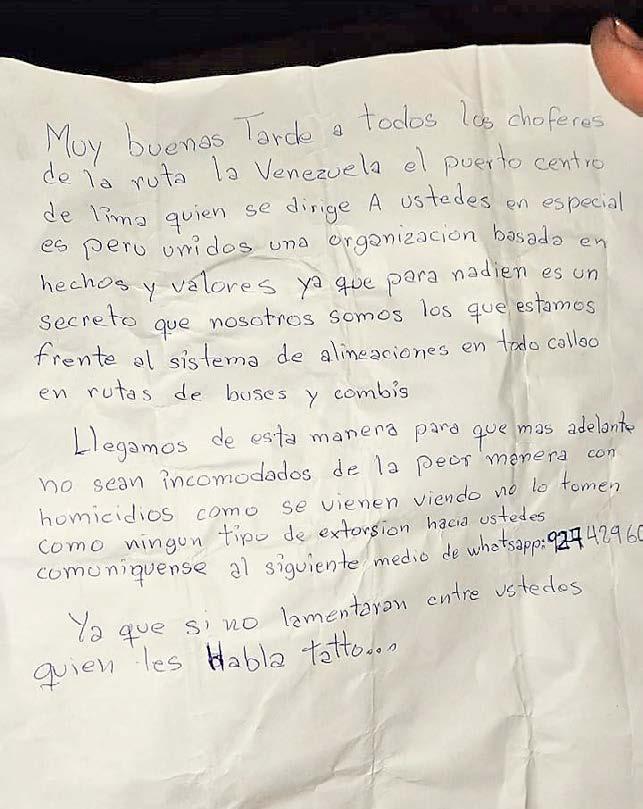 Muy buenas Tarde a todos los choferes
de la ruta la Venezuela el puerto centro
de lima quien se dirige A ustedes en especial
es peru unidos una organizacion basada en
hechos y valores ya que para nadien es un
secreto que nosotros somos los que estamos
frente al sistema de alineaciones en todo callao
en rutas de buses y combis
Llegamos de esta manera para que mas adelante
no sean incomodados de la peor manera con
homicidios como se vienen viendo no lo tomen
como ningun tipo de extorsion hacia ustedes
comuniquense al siguiente medio de whatsapp:
Ya que si no lamentaran entre ustedes
quien les Habla tatto...